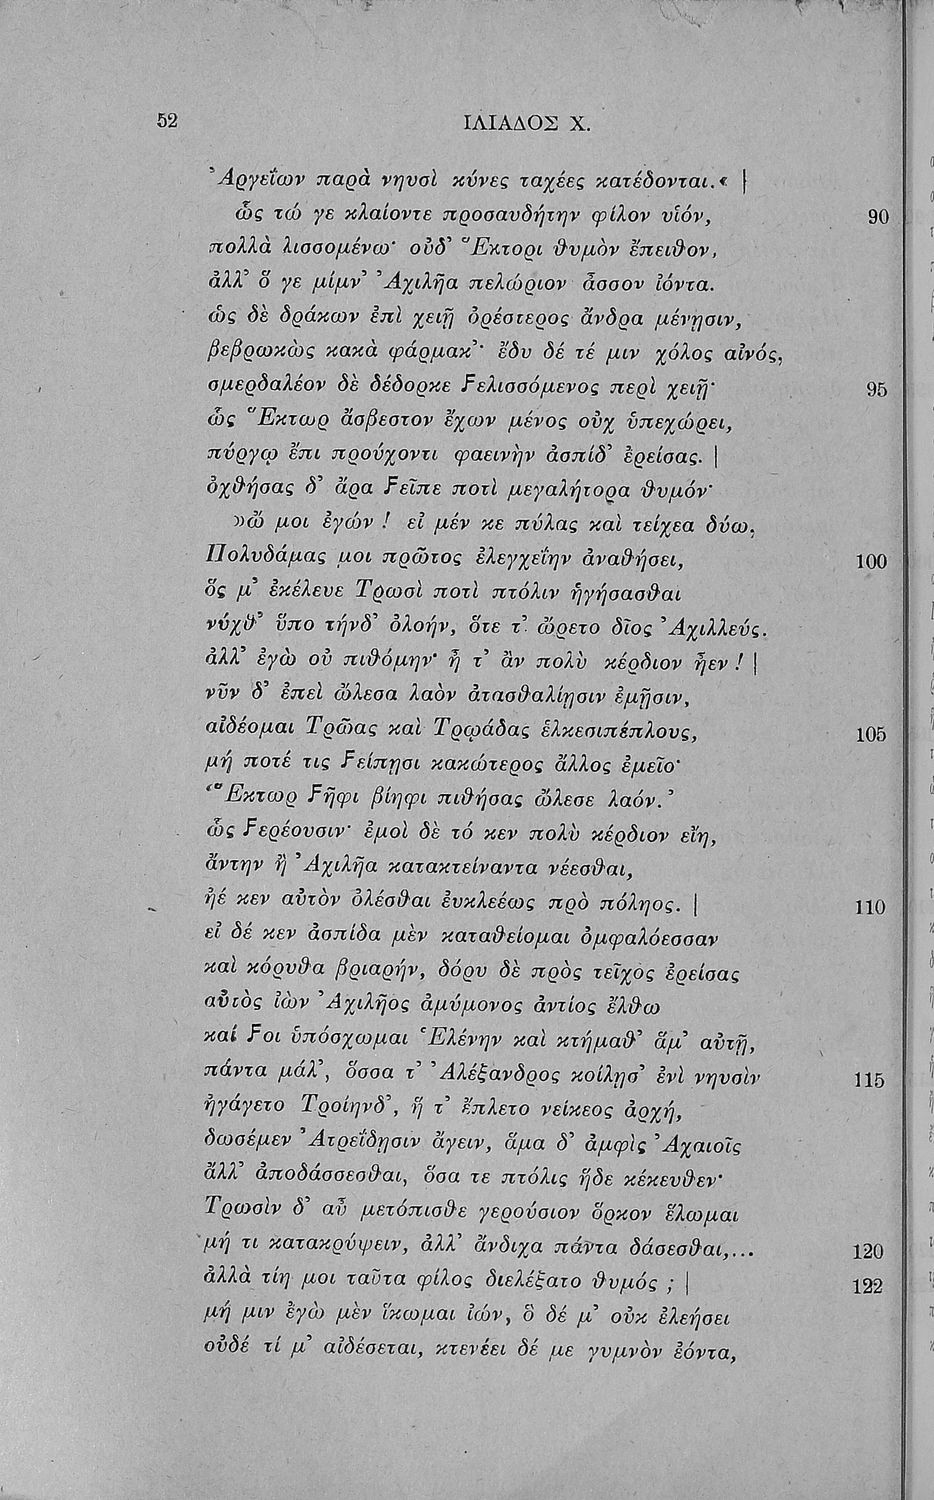 52 ΙΛΙΑΔΟΣ Χ.
Ἀργεΐων παρὰ νηυσὶ κύνες ταχέες κατέδονται.« |
ὣς τώ γε κλαίοντε προσαυδήτην φίλον υἱόν, 90
πολλὰ λισσομένω· οὐδ’ Ἕκτορι θυμὸν ἔπειθον,
ἀλλ’ ὅ γε μίμν’ Ἀχιλῆα πελώριον ἆσσον ἰόντα.
ὡς δὲ δράκων ἐπὶ χειῇ ὀρέστερος ἄνδρα μένῃσιν,
βεβρωκὼς κακὰ φάρμακ’· ἔδυ δέ τέ μιν χόλος αἰνός,
σμερδαλέον δὲ δέδορκε Ϝελισσόμενος περὶ χειῇ· 95
ὣς Ἕκτωρ ἄσβεστον ἔχων μένος οὐχ ὑπεχώρει,
πύργῳ ἔπι προύχοντι φαεινὴν ἀσπίδ’ ἐρείσας. |
ὀχθήσας δ’ ἄρα Ϝεῖπε ποτὶ μεγαλήτορα θυμόν·
»ὤ μοι ἐγών! εἰ μέν κε πύλας καὶ τείχεα δύω,
Πολυδάμας μοι πρῶτος ἐλεγχεΐην ἀναθήσει, 100
ὅς μ’ ἐκέλευε Τρωσὶ ποτὶ πτόλιν ἡγήσασθαι
νύχθ’ ὕπο τήνδ’ ὀλοήν, ὅτε τ’ ὤρετο δῖος Ἀχιλλεύς.
ἀλλ’ ἐγὼ οὐ πιθόμην· ἦ τ’ ἂν πολὺ κέρδιον ἦεν! |
νῦν δ’ ἐπεὶ ὤλεσα λαὸν ἀτασθαλίῃσιν ἐμῇσιν,
αἰδέομαι Τρῶας καὶ Τρῳάδας ἑλκεσιπέπλους, 105
μή ποτέ τις Ϝείπῃσι κακώτερος ἄλλος ἐμεῖο·
‘Ἕκτωρ Ϝῆφι βίηφι πιθήσας ὤλεσε λαόν.’
ὣς Ϝερέουσιν· ἐμοὶ δὲ τό κεν πολὺ κέρδιον εἴη,
ἄντην ἢ Ἀχιλῆα κατακτείναντα νέεσθαι,
ἠέ κεν αὐτὸν ὀλέσθαι ἐυκλεέως πρὸ πόληος. | 110
εἰ δέ κεν ἀσπίδα μὲν καταθείομαι ὀμφαλόεσσαν
καὶ κόρυθα βριαρήν, δόρυ δὲ πρὸς τεῖχος ἐρείσας
αὐτὸς ἰὼν Ἀχιλῆος ἀμύμονος ἀντίος ἔλθω
καί Ϝοι ὑπόσχωμαι Ἑλένην καὶ κτήμαθ’ ἅμ’ αὐτῇ,
πάντα μάλ’, ὅσσα τ’ Ἀλέξανδρος κοίλῃσ’ ἐνὶ νηυσὶν 115
ἠγάγετο Τροίηνδ’, ἥ τ’ ἔπλετο νείκεος ἀρχή,
δωσέμεν Ἀτρεΐδῃσιν ἄγειν, ἅμα δ’ ἀμφὶς Ἀχαιοῖς
ἄλλ’ ἀποδάσσεσθαι, ὅσα τε πτόλις ἥδε κέκευθεν·
Τρωσὶν δ’ αὖ μετόπισθε γερούσιον ὅρκον ἕλωμαι
μή τι κατακρύψειν, ἀλλ’ ἄνδιχα πάντα δάσεσθαι,... 120
ἀλλὰ τίη μοι ταῦτα φίλος διελέξατο θυμός; | 122
μή μιν ἐγὼ μὲν ἵκωμαι ἰών, ὃ δέ μ’ οὐκ ἐλεήσει
οὐδέ τί μ’ αἰδέσεται, κτενέει δέ με γυμνὸν ἐόντα,